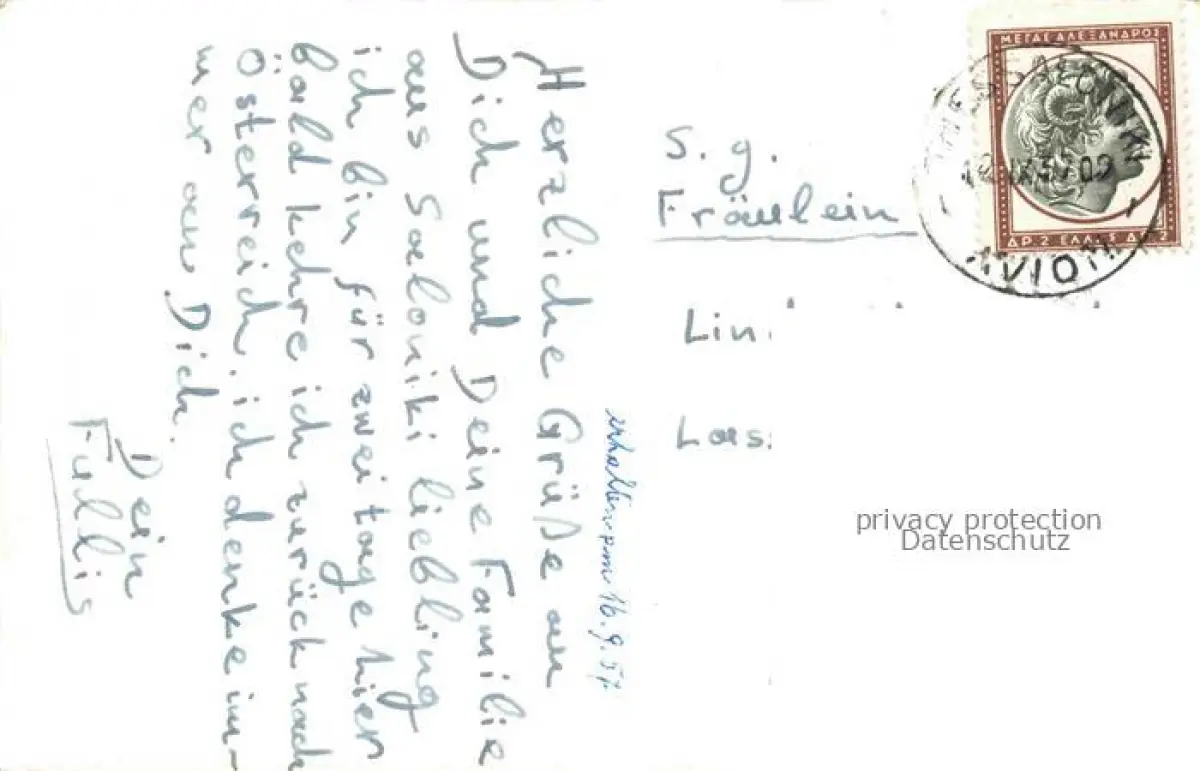 Herzliche Grüße an
Dich und Deine Familie
aus Saeloniki liebling
ich bin für zwei tage hier
bald kehre ich zurück nach
Österreich. ich denke im-
mer an Dich.
Dein
Fullis
erhalten am 16.9.57
S. g.
Fräulein
Lin
Las
ΜΕΓΑΣ ΑΛΕΞΑΝΔΡΟΣ
ΔΡ. 2 ΕΛΛΑΣ ΔΡ. 2
AVION
privacy protection
Datenschutz